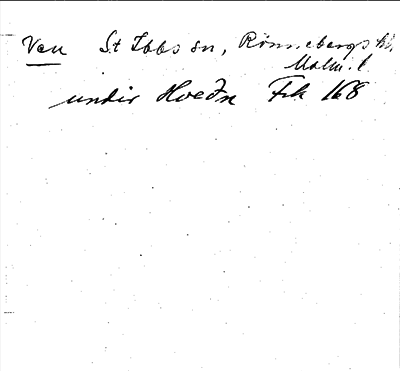 Ven St Ibbs sn, Rönnebergs hd
Malm. l
under Hveðn Frk 168